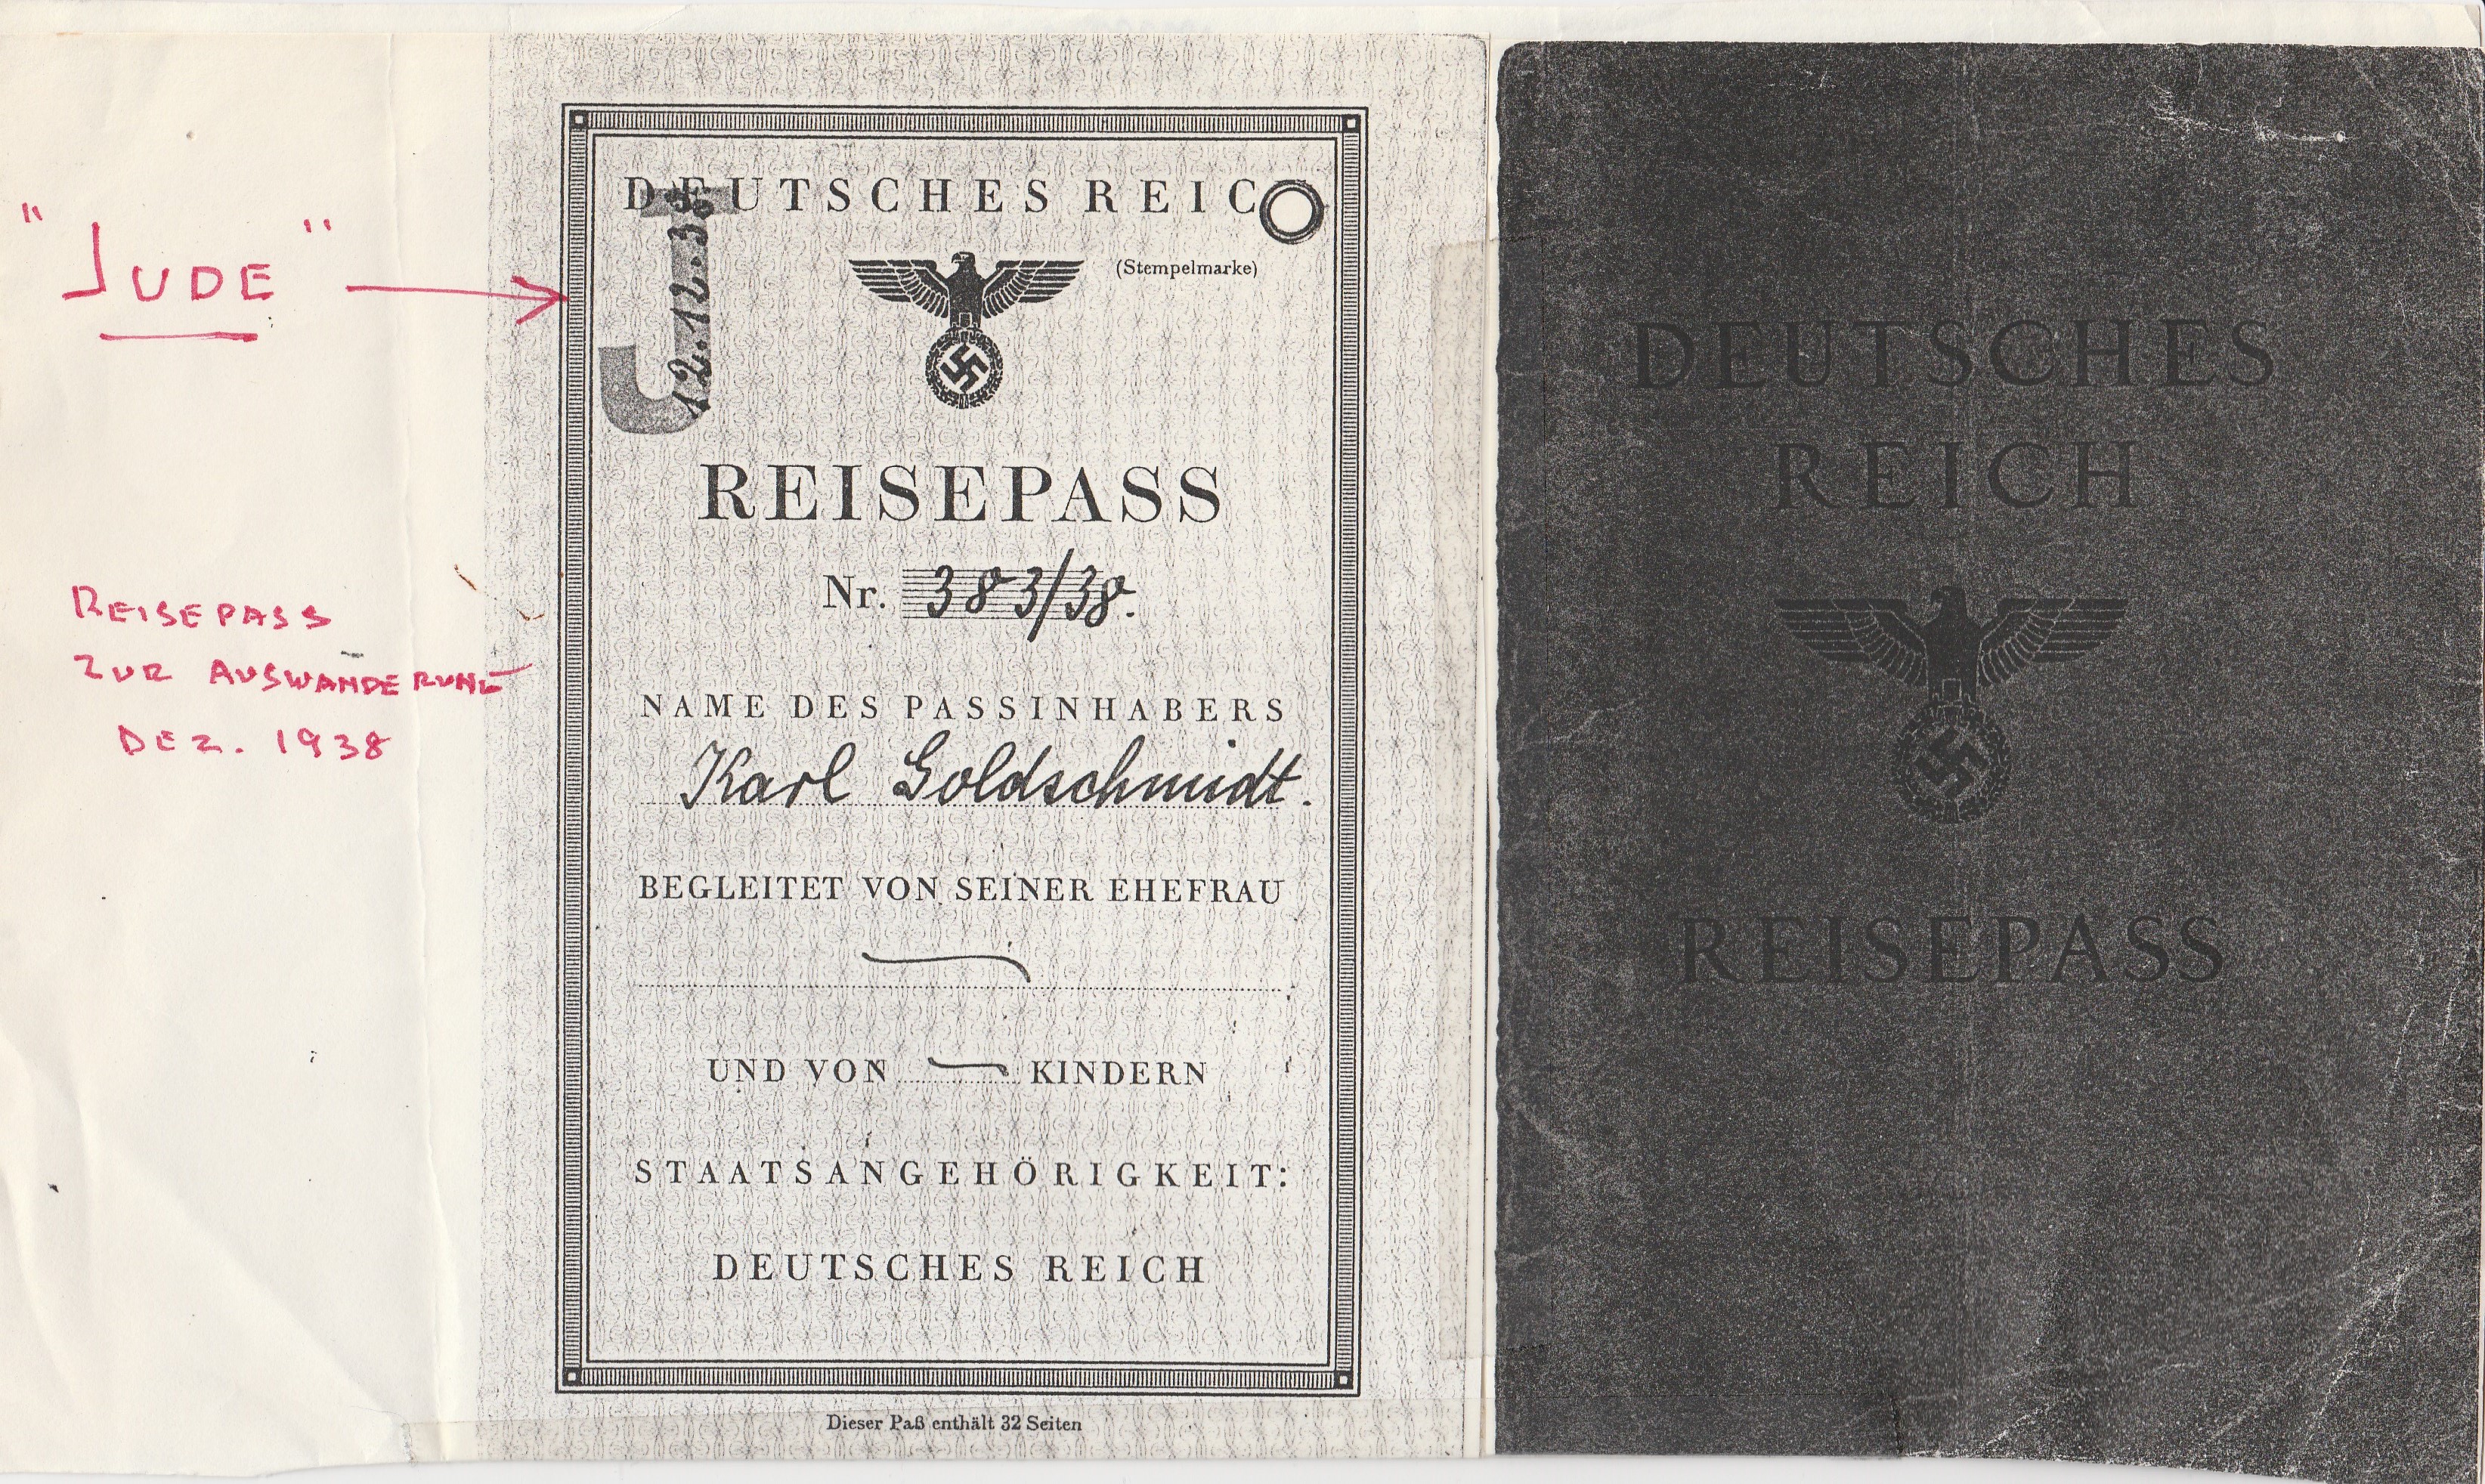 "JUDE"
REISEPASS
ZUR AUSWANDERUNG
DEZ. 1938
DEUTSCHES REIC
J
12.12.38
(Stempelmarke)
REISEPASS
Nr. 383/38.
NAME DES PASSINHABERS
Karl Goldschmidt.
BEGLEITET VON SEINER EHEFRAU
UND VON KINDERN
STAATSANGEHÖRIGKEIT:
DEUTSCHES REICH
Dieser Paß enthält 32 Seiten
DEUTSCHES
REICH
REISEPASS